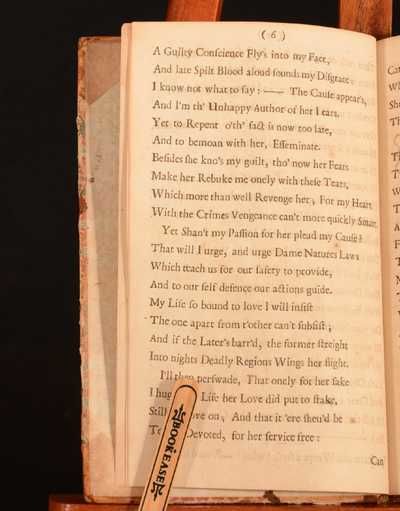 ( 6 )
A Guilty Conscience Fly's into my Face,
And late Spilt Blood aloud sounds my Disgrace:
I know not what to say: —— The Cause appear's,
And I'm th' Unhappy Author of her Tears.
Yet to Repent o'th' fact is now too late,
And to bemoan with her, Effeminate.
Besides she kno's my guilt, tho' now her Fears
Make her Rebuke me onely with these Tears,
Which more than well Revenge her; For my Heart
With the Crimes Vengeance can't more quickly Smart.
Yet Shan't my Passion for her plead my Cause?
That will I urge, and urge Dame Natures Laws
Which teach us for our safety to provide,
And to our self defence our actions guide.
My Life so bound to love I will insist
The one apart from t'other can't subsist;
And if the Later's barr'd, the former streight
Into nights Deadly Regions Wings her flight.
I'll then perswade, That onely for her sake
I Life her Love did put to stake,
Still ove on, And that it 'ere shou'd be
Devoted, for her service free:
Can
BOOKEASE